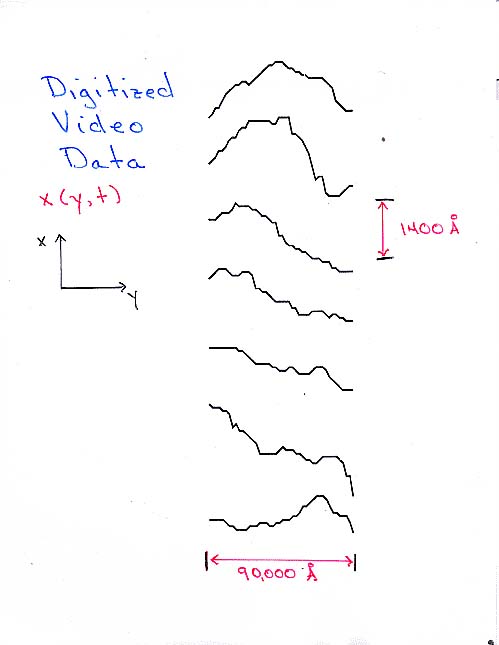 Digitized
Video
Data
x(y,t)
x
y
1400 Å
90,000 Å